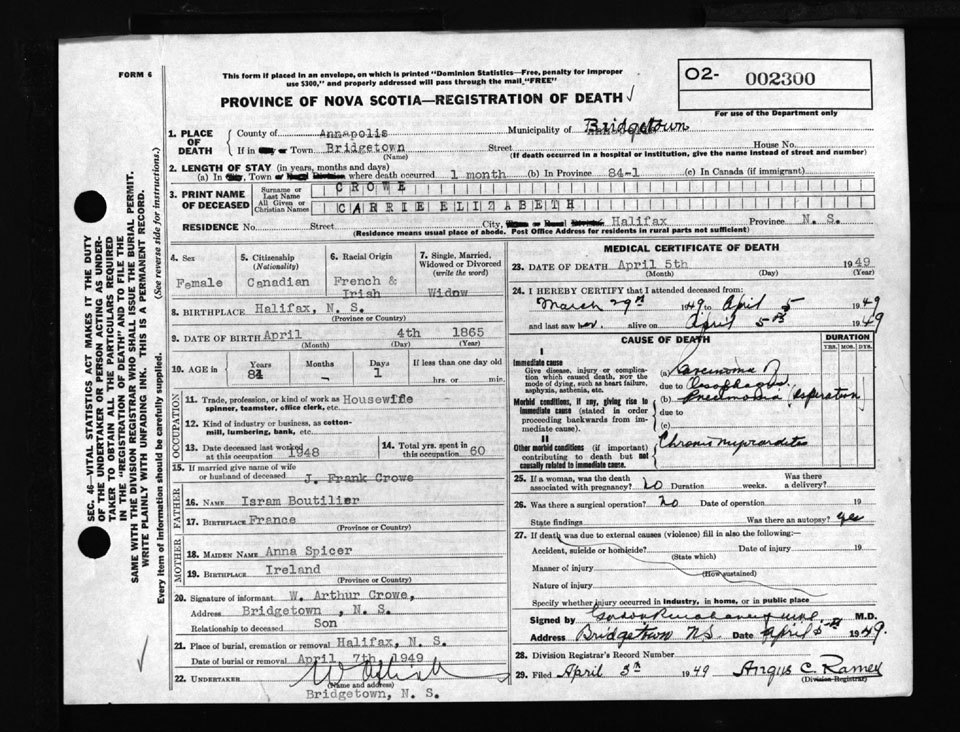 FORM 6
This form if placed in an envelope, on which is printed "Dominion Statistics—Free, penalty for improper
use $300," and properly addressed will pass through the mail "FREE"
PROVINCE OF NOVA SCOTIA—REGISTRATION OF DEATH
O2- 002300
For use of the Department only
SEC. 46—VITAL STATISTICS ACT MAKES IT THE DUTY
OF THE UNDERTAKER OR PERSON ACTING AS UNDER-
TAKER TO OBTAIN ALL THE PARTICULARS REQUIRED
IN THE "REGISTRATION OF DEATH" AND TO FILE THE
SAME WITH THE DIVISION REGISTRAR WHO SHALL ISSUE THE BURIAL PERMIT.
WRITE PLAINLY WITH UNFADING INK. THIS IS A PERMANENT RECORD.
Every item of information should be carefully supplied. (See reverse side for instructions.)
1. PLACE OF DEATH
County of Annapolis Municipality of Bridgetown
If in Town Bridgetown Street House No.
(Name) (If death occurred in a hospital or institution, give the name instead of street and number)
2. LENGTH OF STAY (in years, months and days)
(a) In Town where death occurred 1 month (b) In Province 84-1 (c) In Canada (if immigrant)
3. PRINT NAME OF DECEASED
Surname or Last Name CROWE
All Given or Christian Names CARRIE ELIZABETH
RESIDENCE No. Street City, Halifax Province N. S.
(Residence means usual place of abode. Post Office Address for residents in rural parts not sufficient)
4. Sex Female
5. Citizenship (Nationality) Canadian
6. Racial Origin French & Irish
7. Single, Married, Widowed or Divorced (write the word) Widow
8. BIRTHPLACE Halifax, N. S.
(Province or Country)
9. DATE OF BIRTH April 4th 1865
(Month) (Day) (Year)
10. AGE in Years 84 Months - Days 1 If less than one day old hrs. or min.
OCCUPATION
11. Trade, profession, or kind of work as spinner, teamster, office clerk, etc. Housewife
12. Kind of industry or business, as cotton-mill, lumbering, bank, etc.
13. Date deceased last worked at this occupation 1948
14. Total yrs. spent in this occupation 60
15. If married give name of wife or husband of deceased J. Frank Crowe
FATHER
16. NAME Isram Boutilier
17. BIRTHPLACE France
(Province or Country)
MOTHER
18. MAIDEN NAME Anna Spicer
19. BIRTHPLACE Ireland
(Province or Country)
20. Signature of informant W. Arthur Crowe,
Address Bridgetown, N. S.
Relationship to deceased Son
21. Place of burial, cremation or removal Halifax, N. S.
Date of burial or removal April 7th 1949
22. UNDERTAKER
(Name and address)
Bridgetown, N. S.
MEDICAL CERTIFICATE OF DEATH
23. DATE OF DEATH April 5th 1949
(Month) (Day) (Year)
24. I HEREBY CERTIFY that I attended deceased from:
March 29th 1949 to April 5 1949
and last saw her alive on April 5th 1949
CAUSE OF DEATH
DURATION
YRS. MOS. DYS.
I
Immediate cause
Give disease, injury or complication which caused death, not the mode of dying, such as heart failure, asphyxia, asthenia, etc.
(a) Carcinoma of
due to Oesophagus
Morbid conditions, if any, giving rise to immediate cause (stated in order proceeding backwards from immediate cause).
(b) Pneumonia (Aspiration)
due to
(c)
II
Other morbid conditions (if important) contributing to death but not causally related to immediate cause.
Chronic myocarditis
25. If a woman, was the death associated with pregnancy? No Duration weeks. Was there a delivery?
26. Was there a surgical operation? No Date of operation 19
State findings Was there an autopsy? yes
27. If death was due to external causes (violence) fill in also the following:—
Accident, suicide or homicide? Date of injury 19
(State which)
Manner of injury
(How sustained)
Nature of injury
Specify whether injury occurred in industry, in home, or in public place
Signed by M.D.
Address Bridgetown NS Date April 5th 1949.
28. Division Registrar's Record Number
29. Filed April 5th 1949 Angus C. Ramey
(Division Registrar)